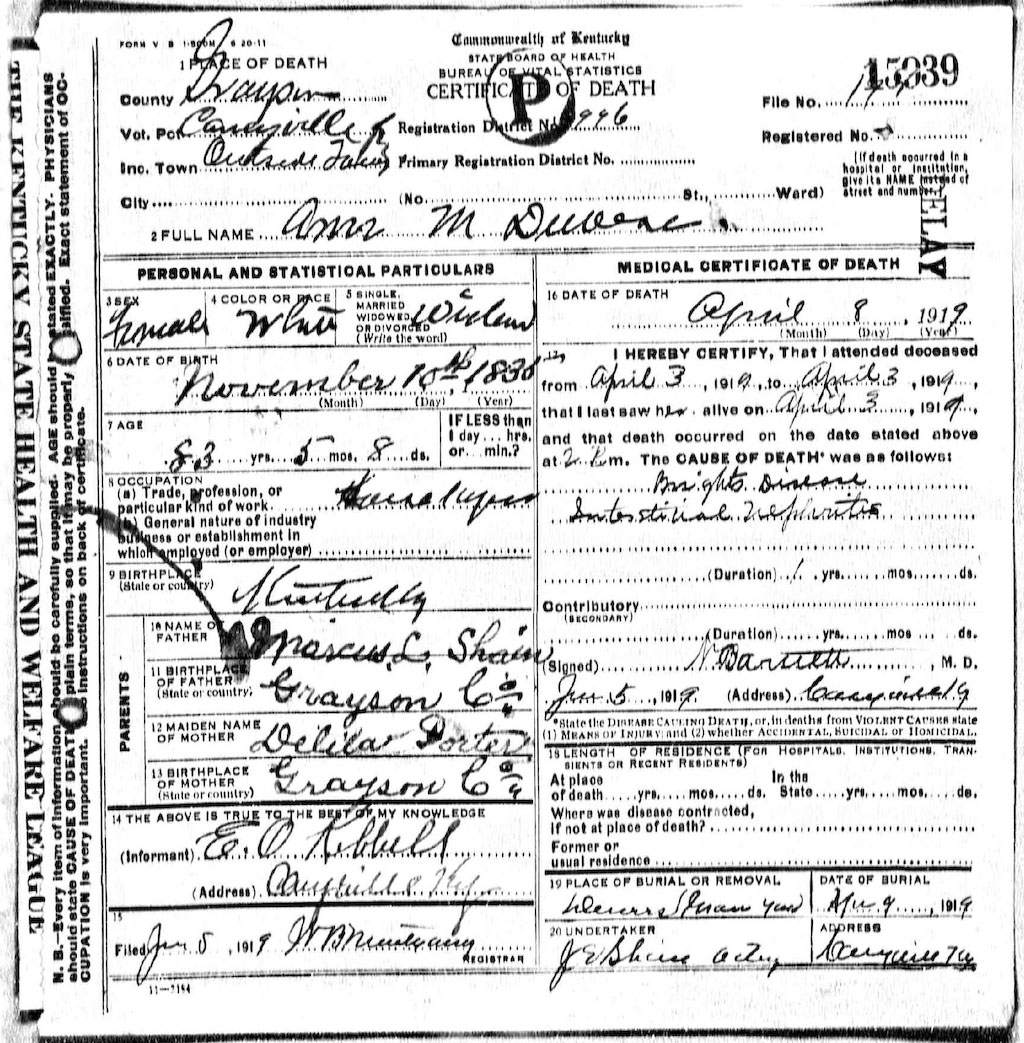 FORM V B 1-500M 6 20-11
Commonwealth of Kentucky
STATE BOARD OF HEALTH
BUREAU OF VITAL STATISTICS
CERTIFICATE OF DEATH
P
15939
File No.
1 PLACE OF DEATH
County Grayson
Vot. Pct Caneyville
Registration District No. 996
Registered No.
Inc. Town Outside Town
Primary Registration District No.
(If death occurred in a hospital or institution, give its NAME instead of street and number.)
City (No. St., Ward)
2 FULL NAME Ann M
DELAY
PERSONAL AND STATISTICAL PARTICULARS
3 SEX Female
4 COLOR OR RACE White
5 SINGLE, MARRIED WIDOWED OR DIVORCED (Write the word) Widow
6 DATE OF BIRTH
November 10th, 183
(Month) (Day) (Year)
7 AGE
83 yrs. 5 mos. 8 ds.
IF LESS than 1 day... hrs. or... min.?
8 OCCUPATION
(a) Trade, profession, or particular kind of work
(b) General nature of industry business or establishment in which employed (or employer)
9 BIRTHPLACE (State or country) Kentucky
PARENTS
10 NAME OF FATHER Marcus. L. Shain
11 BIRTHPLACE OF FATHER (State or country) Grayson Co Ky
12 MAIDEN NAME OF MOTHER Delila Porter
13 BIRTHPLACE OF MOTHER (State or country) Grayson Co Ky
14 THE ABOVE IS TRUE TO THE BEST OF MY KNOWLEDGE
(Informant) E. O.
(Address) Caneyville Ky
15
Filed 5, 1919 W B
REGISTRAR
11-3184
MEDICAL CERTIFICATE OF DEATH
16 DATE OF DEATH
April 8, 1919
(Month) (Day) (Year)
17 I HEREBY CERTIFY, That I attended deceased
from April 3, 1919, to April 3, 1919,
that I last saw her alive on April 3, 1919,
and that death occurred on the date stated above
at 2 P.m. The CAUSE OF DEATH* was as follows:
Brights Disease
Interstitial Nephritis
(Duration) 1 yrs. mos. ds.
Contributory
(SECONDARY)
(Duration) yrs. mos ds.
(Signed) Barnett, M. D.
5, 1919 (Address) Caneyville
*State the DISEASE CAUSING DEATH, or, in deaths from VIOLENT CAUSES state
(1) MEANS OF INJURY; and (2) whether ACCIDENTAL, SUICIDAL or HOMICIDAL.
18 LENGTH OF RESIDENCE (FOR HOSPITALS, INSTITUTIONS, TRANSIENTS OR RECENT RESIDENTS)
At place of death yrs. mos. ds. In the State yrs. mos. ds.
Where was disease contracted,
If not at place of death?
Former or
usual residence
19 PLACE OF BURIAL OR REMOVAL
DATE OF BURIAL
Apr 9, 1919
20 UNDERTAKER
ADDRESS
J E Shain
Caneyville Ky
THE KENTUCKY STATE HEALTH AND WELFARE LEAGUE
N. B.—Every item of information should be carefully supplied. AGE should be stated EXACTLY. PHYSICIANS
should state CAUSE OF DEATH in plain terms, so that it may be properly classified. Exact statement of OC-
CUPATION is very important. See instructions on back of certificate.